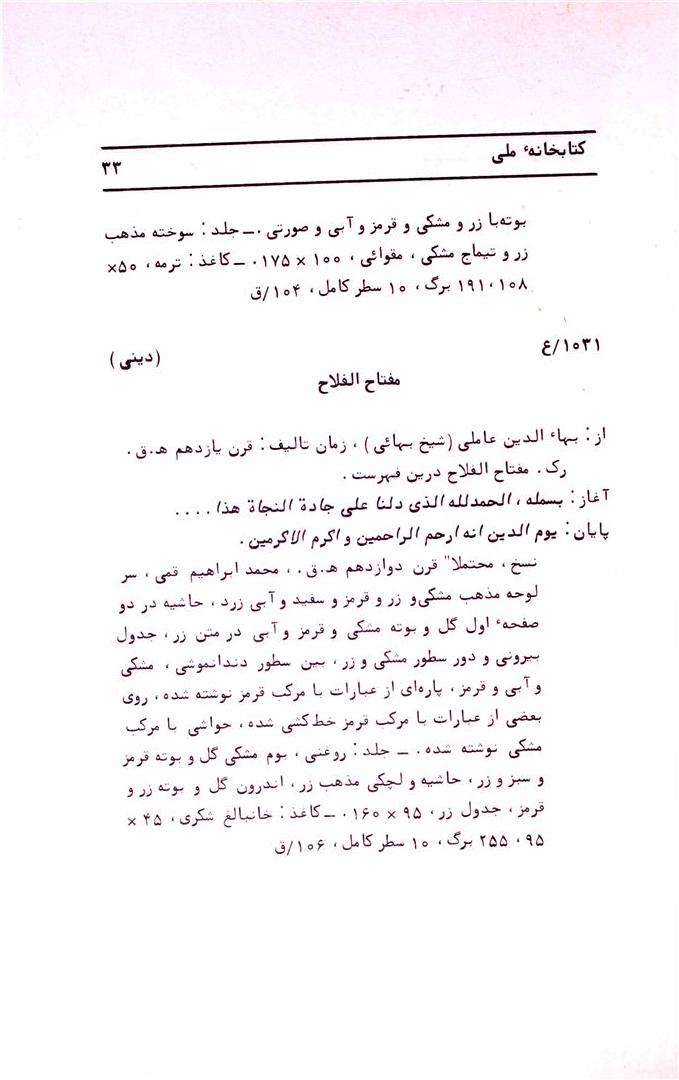 کتابخانهٔ ملی
۳۳
بوته‌با زر و مشکی و قرمز و آبی و صورتی .ــ جلد : سوخته مذهب
زر و تیماج مشکی ، مقوائی ، ۱۰۰ × ۱۷۵ .ــ کاغذ : ترمه ، ۵۰×
۱۰۸ ، ۱۹۱ برگ ، ۱۰ سطر کامل ، ۱۰۴/ق
۱۰۳۱/ع
(دینی)
مفتاح الفلاح
از : بهاء الدین عاملی (شیخ بهائی) ، زمان تالیف : قرن یازدهم ه‍.ق .
رک . مفتاح الفلاح درین فهرست .
آغاز : بسمله ، الحمدلله الذی دلنا علی جادة النجاة هذا . . . .
پایان : یوم الدین انه ارحم الراحمین و اکرم الاکرمین .
نسخ ، محتملا" قرن دوازدهم ه‍.ق . ، محمد ابراهیم قمی ، سر
لوحه مذهب مشکی و زر و قرمز و سفید و آبی زرد ، حاشیه در دو
صفحهٔ اول گل و بوته مشکی و قرمز و آبی در متن زر ، جدول
بیرونی و دور سطور مشکی و زر ، بین سطور دندانموشی ، مشکی
و آبی و قرمز ، پاره‌ای از عبارات با مرکب قرمز نوشته شده ، روی
بعضی از عبارات با مرکب قرمز خط‌کشی شده ، حواشی با مرکب
مشکی نوشته شده . ــ جلد : روغنی ، بوم مشکی گل و بوته قرمز
و سبز و زر ، حاشیه و لچکی مذهب زر ، اندرون گل و بوته زر و
قرمز ، جدول زر ، ۹۵ × ۱۶۰ .ــ کاغذ : خانبالغ شکری ، ۴۵ ×
۹۵ ، ۲۵۵ برگ ، ۱۰ سطر کامل ، ۱۰۶/ق